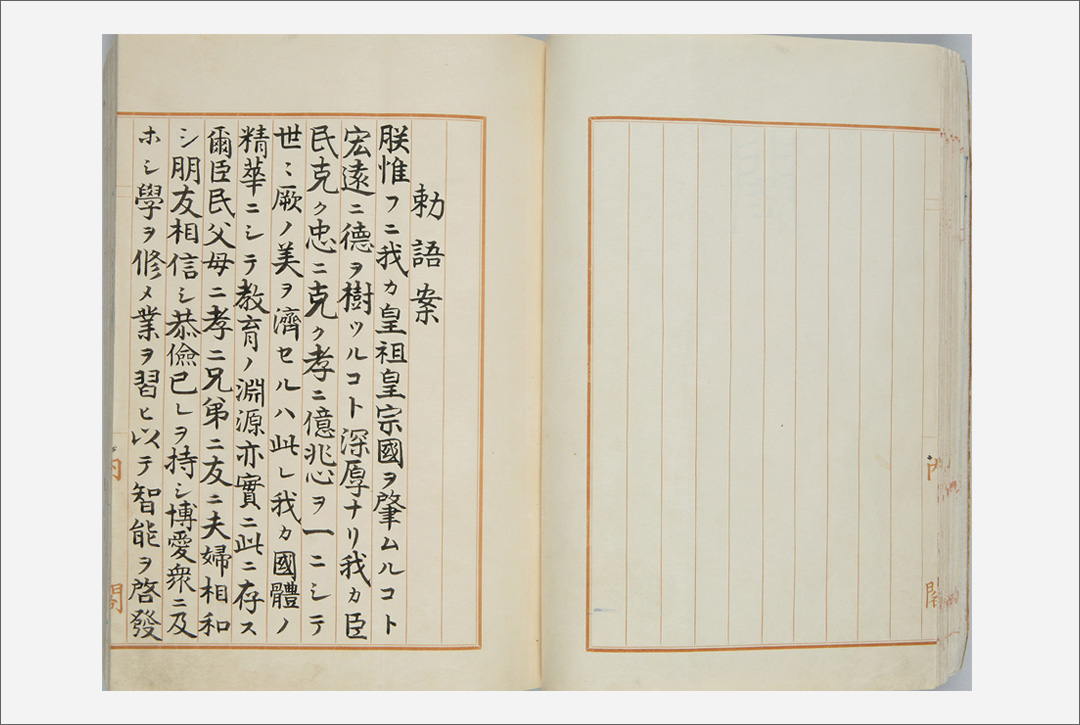 内閣
勅語案
朕惟フニ我カ皇祖皇宗國ヲ肇ムルコト
宏遠ニ德ヲ樹ツルコト深厚ナリ我カ臣
民克ク忠ニ克ク孝ニ億兆心ヲ一ニシテ
世〻厥ノ美ヲ濟セルハ此レ我カ國體ノ
精華ニシテ教育ノ淵源亦實ニ此ニ存ス
爾臣民父母ニ孝ニ兄弟ニ友ニ夫婦相和
シ朋友相信シ恭儉已レヲ持シ博愛衆ニ及
ホシ學ヲ修メ業ヲ習ヒ以テ智能ヲ啓發
内閣